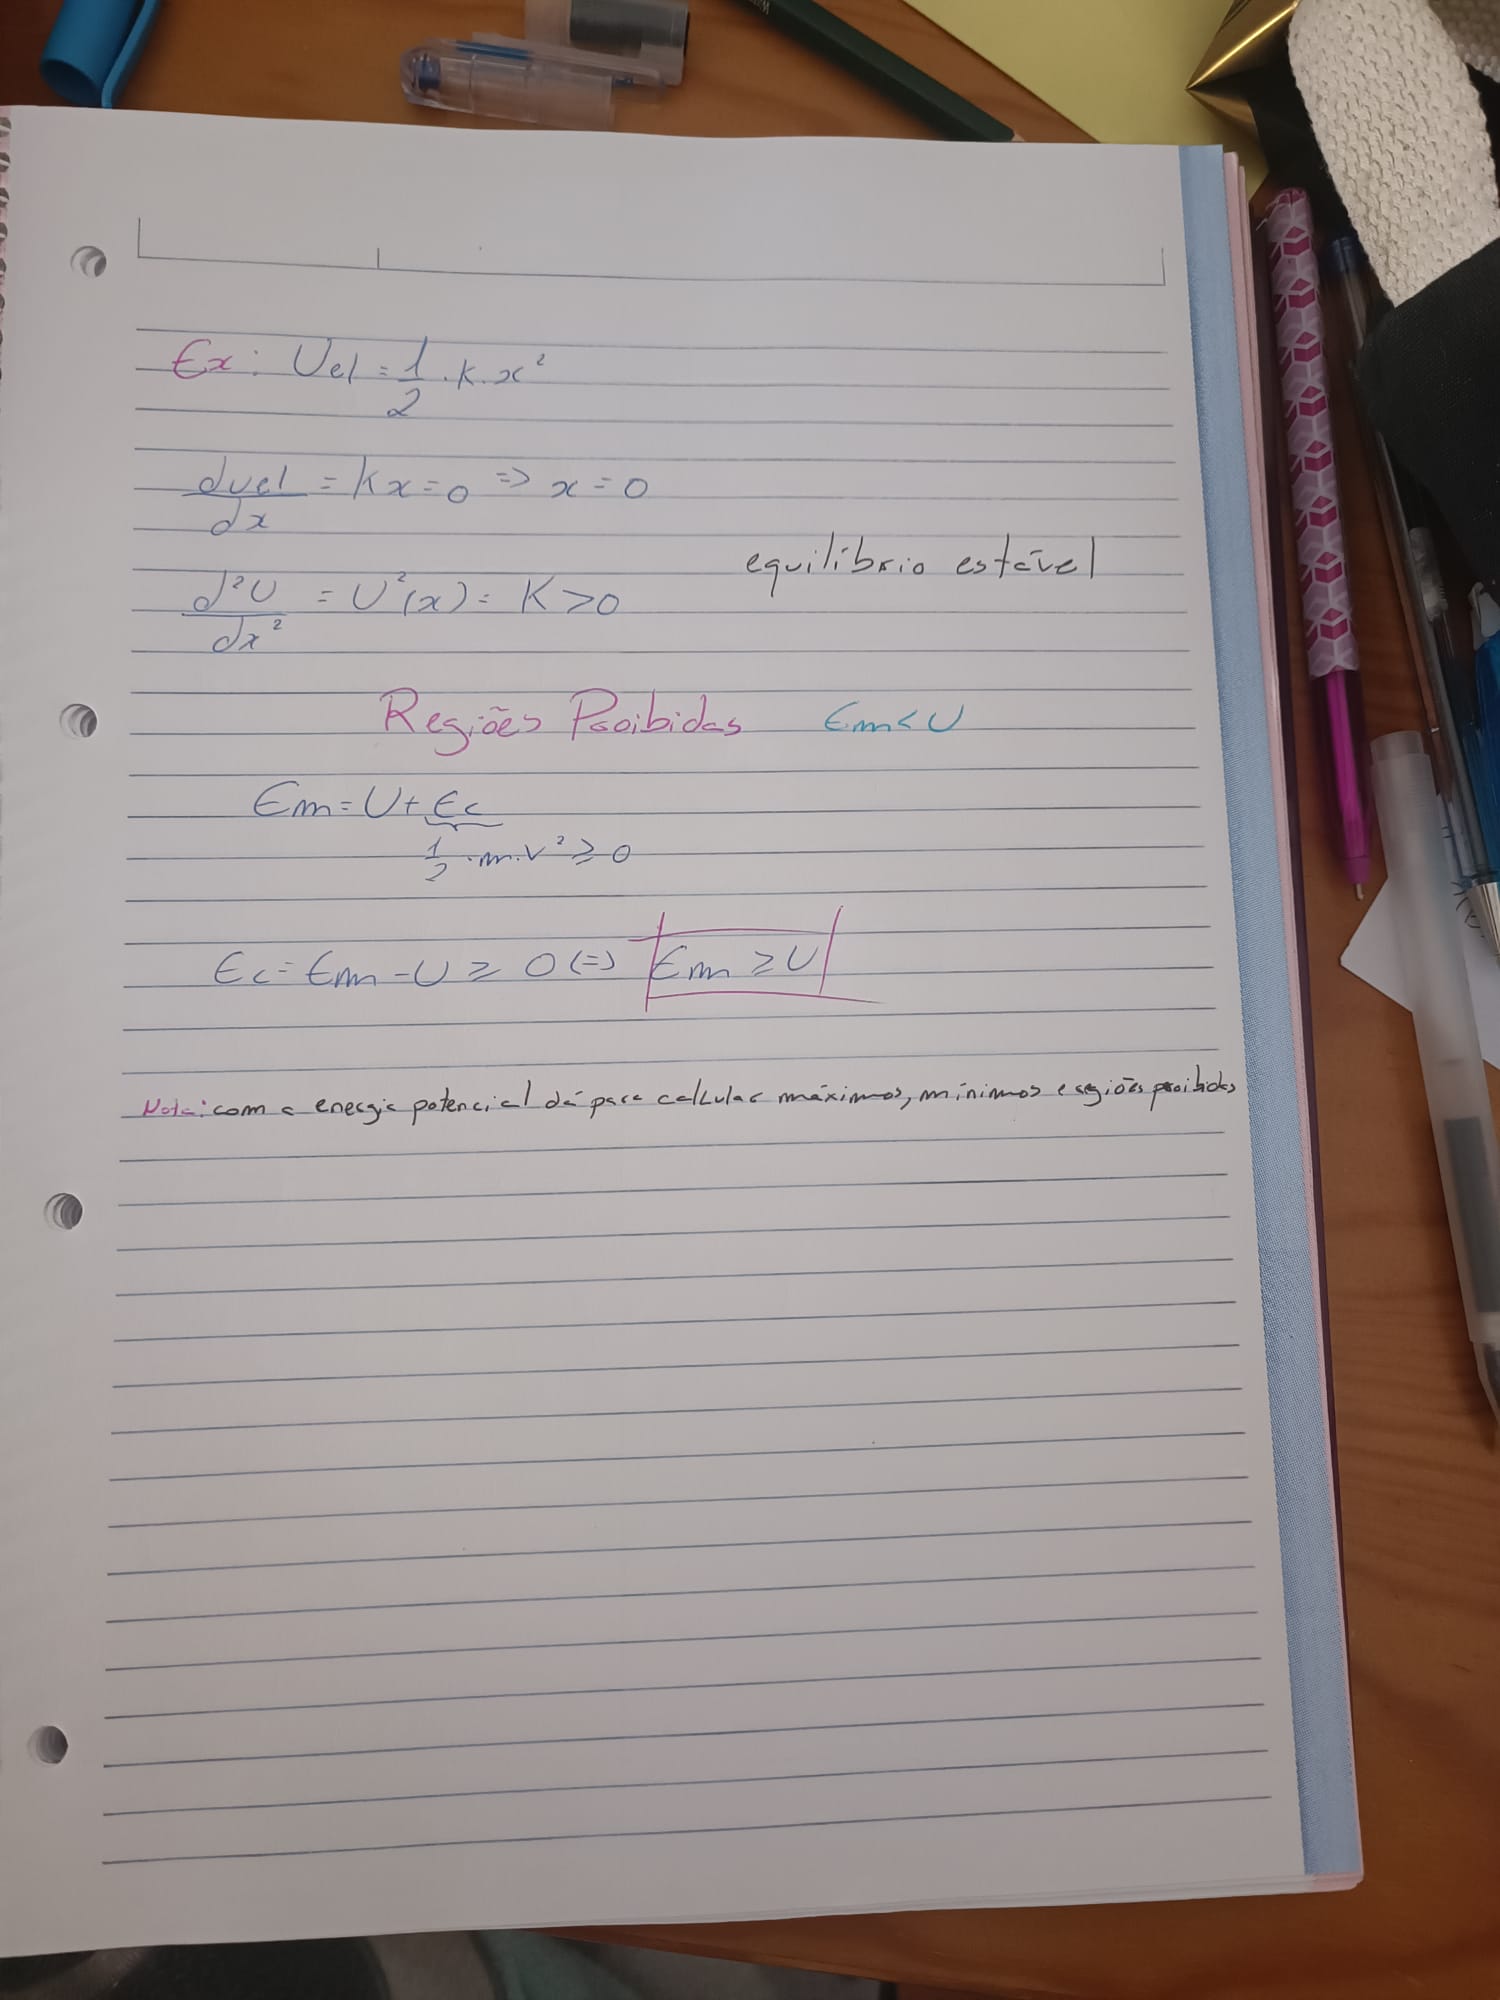 Ex: Uel = 1/2 . K . x²
dUel/dx = Kx = 0 => x = 0
equilíbrio estável
d²U/dx² = U²(x) = K > 0
Regiões Proibidas Em < U
Em = U + Ec
1/2 . m . v² ≥ 0
Ec = Em - U ≥ 0 (=) Em ≥ U
Nota: com a energia potencial dá para calcular máximos, mínimos e regiões proibidas